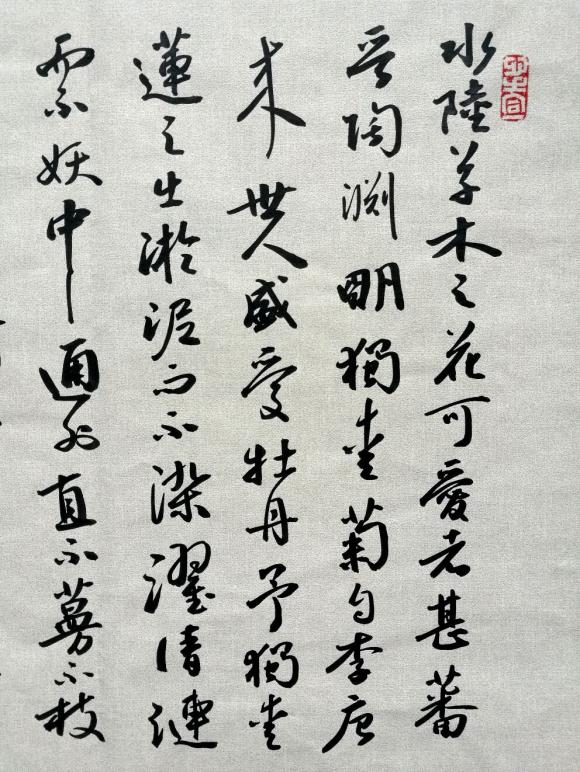 水陸草木之花可愛者甚蕃
晋陶渊明獨愛菊自李唐
来世人盛愛牡丹予獨愛
蓮之出淤泥而不染濯清漣
而不妖中通外直不蔓不枝